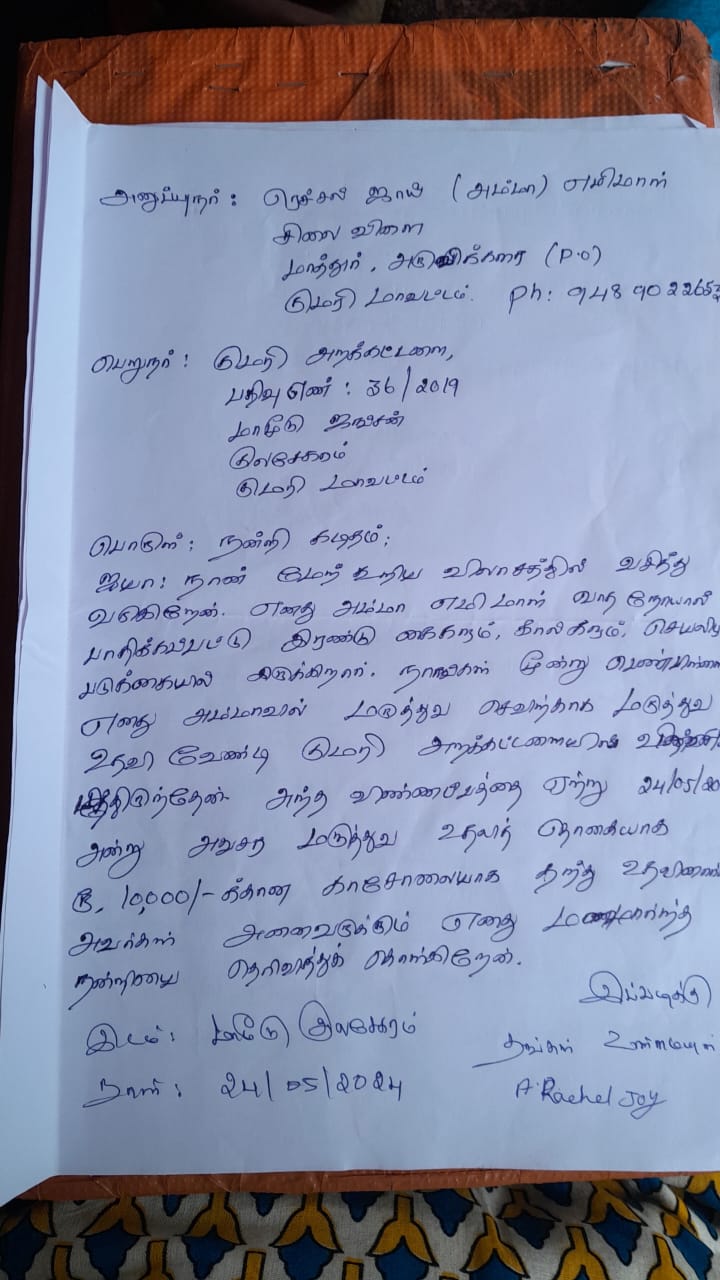 அனுப்புநர் : ரெச்சல் ஜாய் (அம்மா) எமிமாள்
சிலை விளை
மாத்தூர், அருவிக்கரை (P.O)
குமரி மாவட்டம். Ph: 948 90 22653
பெறுநர் : குமரி அறக்கட்டளை,
பதிவு எண் : 36/2019
மாமூடு ஜங்சன்
குலசேகரம்
குமரி மாவட்டம்
பொருள் : நன்றி கடிதம் ;
ஐயா : நான் மேற்கூறிய விலாசத்தில் வசித்து
வருகிறேன். எனது அம்மா எமிமாள் வாத நோயால்
பாதிக்கப்பட்டு இரண்டு கைகளும், கால்களும், செயலிழ
படுக்கையில் இருக்கிறார். நாங்கள் மூன்று பெண்பிள்ளை
எனது அம்மாவின் மருத்துவ செலவிற்காக மருத்துவ
உதவி வேண்டி குமரி அறக்கட்டளையில்
அந்த விண்ணப்பத்தை ஏற்று 24/05/20
அன்று அவசர மருத்துவ உதவித் தொகையாக
ரூ. 10,000/- க்கான காசோலையாக தந்து உதவின
அவர்கள் அனைவருக்கும் எனது மனமார்ந்த
நன்றியை தெரிவித்துக் கொள்கிறேன்.
இப்படிக்கு
இடம் : மாமூடு குலசேகரம்
தங்கள் உண்மையுள்
நாள் : 24/05/2024
A. Rachel Joy